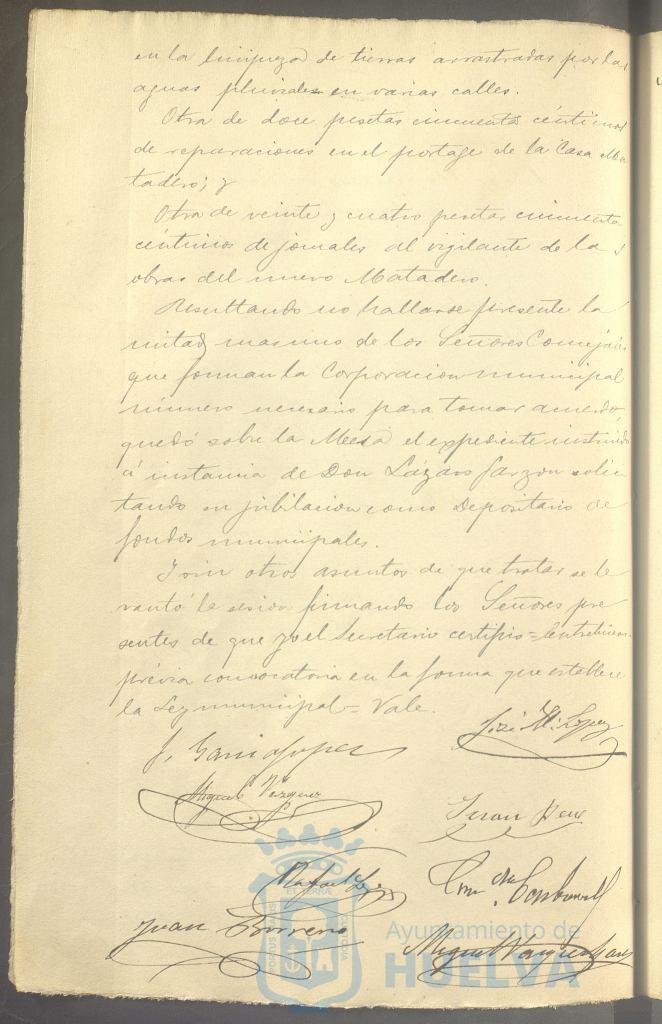 en la limpieza de tierras arrastradas por las
aguas pluviales en varias calles.
Otra de doce pesetas cincuenta céntimos
de reparaciones en el portage de la Casa Ma
tadero; y
Otra de veinte y cuatro pesetas cincuenta
céntimos de jornales al vigilante de las
obras del nuevo Matadero.
Resultando no hallarse presente la
mitad mas uno de los Señores Concejales
que forman la Corporacion municipal
número necesario para tomar acuerdo,
quedó sobre la Mesa el expediente instruido
á instancia de Don Lázaro Garzon solici
tando su jubilacion como Depositario de
fondos municipales.
Y sin otros asuntos de que tratar se le
vantó la sesion firmando los Señores pre
sentes de que yo el Secretario certifico = Entrelineas
prévia convocatoria en la forma que establece
la Ley municipal = Vale.
José M. Lopez
J. Garcia Lopez
Miguel Vazquez
Juan
Rafael Lopez
Juan Borrero
Miguel Vazquez
PORTUS MARIS
ET TERRÆ
CUSTODIA
Ayuntamiento de
HUELVA